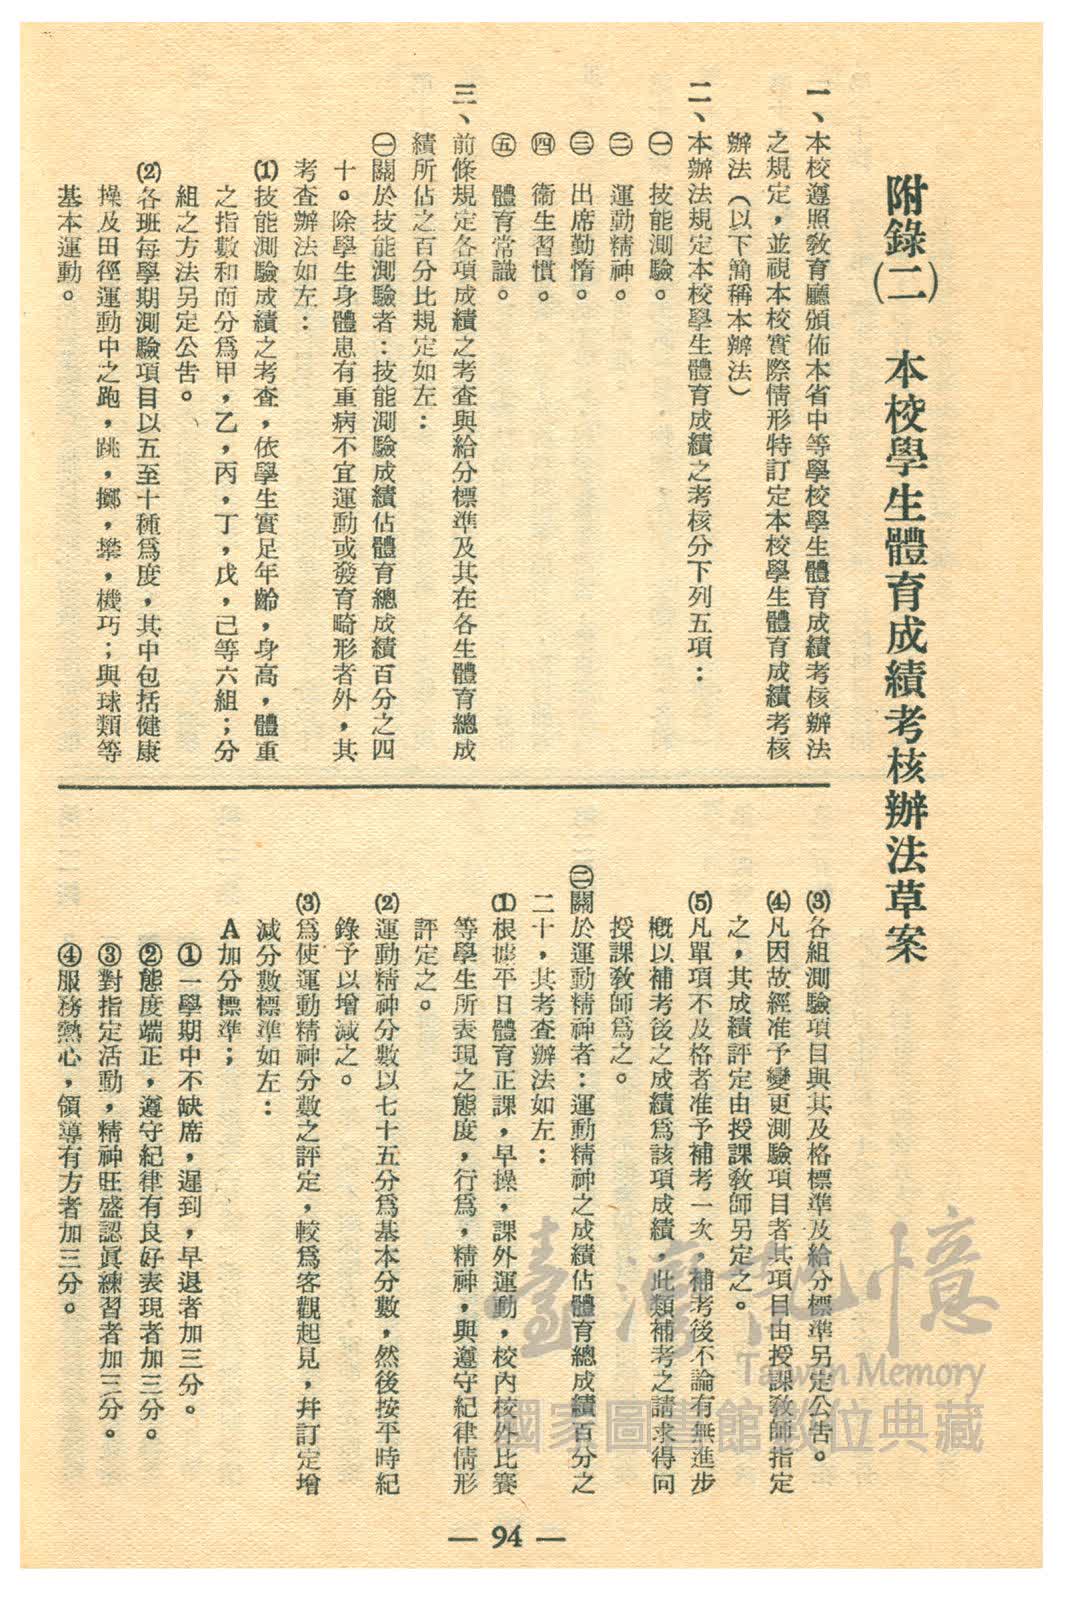 附錄(二)　本校學生體育成績考核辦法草案
一、本校遵照教育廳頒佈本省中等學校學生體育成績考核辦法
之規定，並視本校實際情形特訂定本校學生體育成績考核
辦法（以下簡稱本辦法）
二、本辦法規定本校學生體育成績之考核分下列五項：
㊀　技能測驗。
㊁　運動精神。
㊂　出席勤惰。
㊃　衞生習慣。
㊄　體育常識。
三、前條規定各項成績之考查與給分標準及其在各生體育總成
績所佔之百分比規定如左：
㊀關於技能測驗者：技能測驗成績佔體育總成績百分之四
十。除學生身體患有重病不宜運動或發育畸形者外，其
考查辦法如左：
⑴技能測驗成績之考查，依學生實足年齡，身高，體重
之指數和而分爲甲，乙，丙，丁，戊，己等六組；分
組之方法另定公告。
⑵各班每學期測驗項目以五至十種爲度，其中包括健康
操及田徑運動中之跑，跳，擲，攀，機巧；與球類等
基本運動。
⑶各組測驗項目與其及格標準及給分標準另定公告。
⑷凡因故經准予變更測驗項目者其項目由授課敎師指定
之，其成績評定由授課敎師另定之。
⑸凡單項不及格者准予補考一次，補考後不論有無進步
概以補考後之成績爲該項成績，此類補考之請求得向
授課敎師爲之。
㊁關於運動精神者：運動精神之成績佔體育總成績百分之
二十，其考查辦法如左：
⑴根據平日體育正課，早操，課外運動，校內校外比賽
等學生所表現之態度，行爲，精神，與遵守紀律情形
評定之。
⑵運動精神分數以七十五分爲基本分數，然後按平時紀
錄予以增減之。
⑶爲使運動精神分數之評定，較爲客觀起見，幷訂定增
減分數標準如左：
A加分標準；
①一學期中不缺席，遲到，早退者加三分。
②態度端正，遵守紀律有良好表現者加三分。
③對指定活動，精神旺盛認眞練習者加三分。
④服務熱心，領導有方者加三分。
— 94 —
臺灣記憶
Taiwan Memory
國家圖書館數位典藏